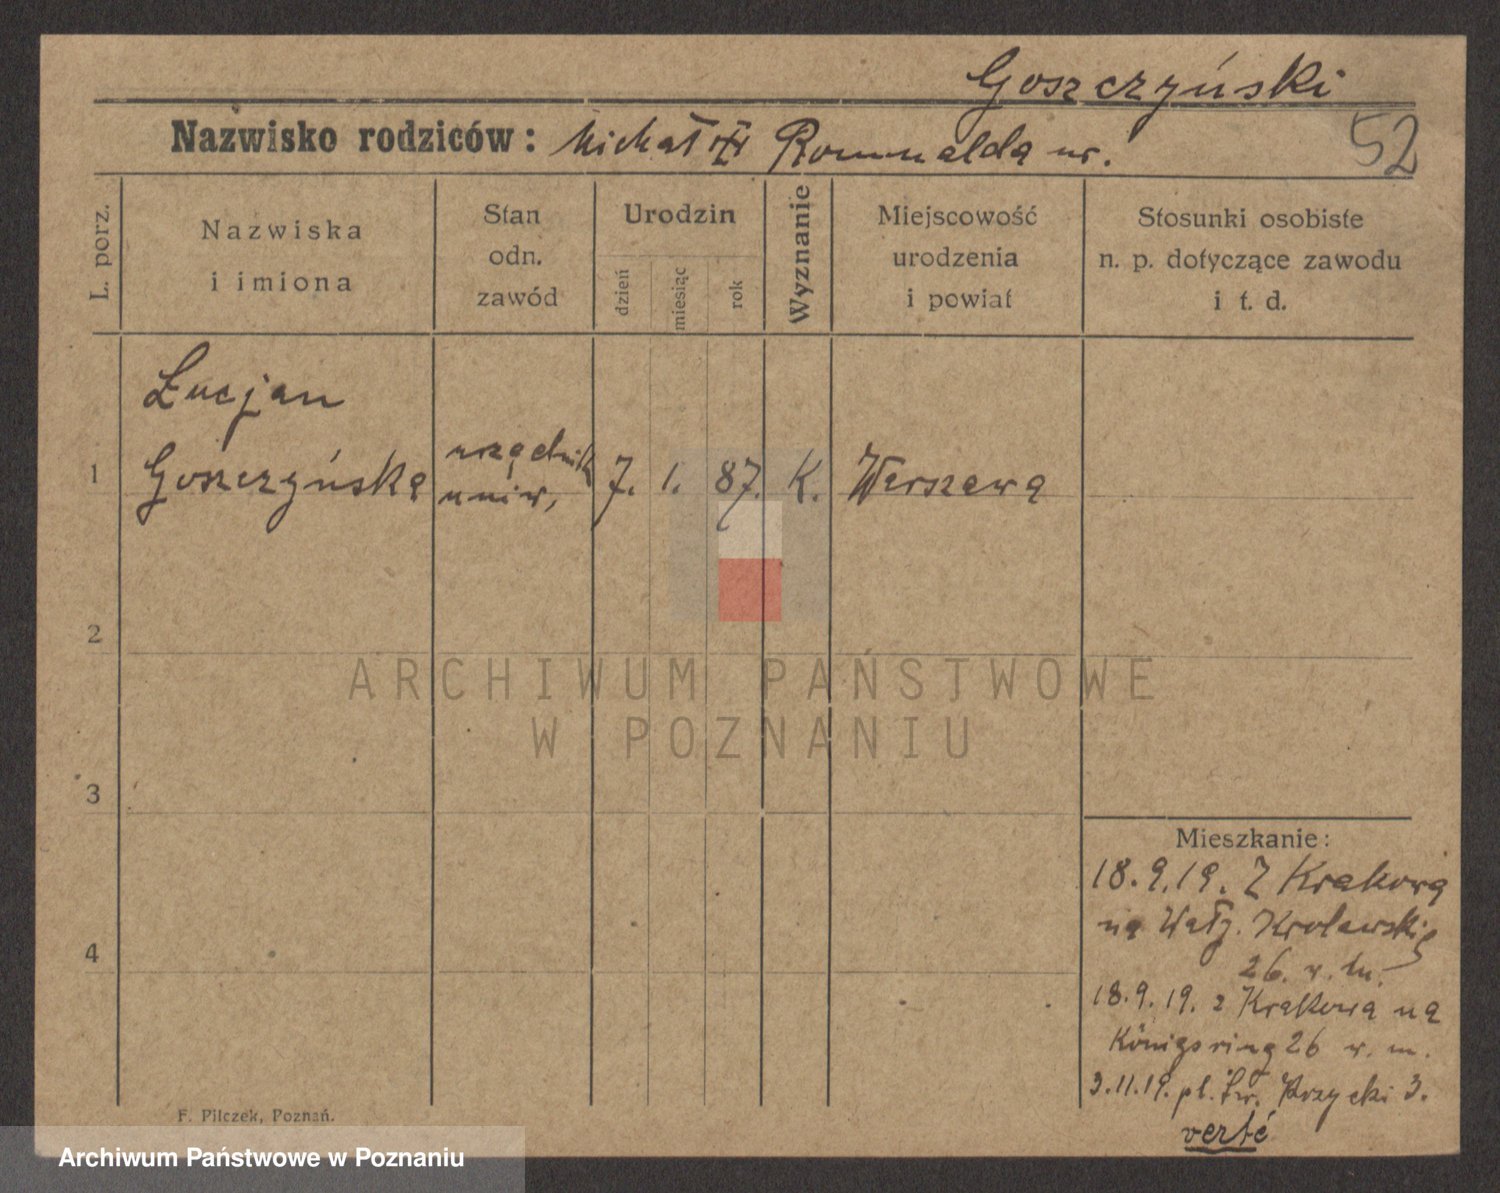 Goszczyński
Nazwisko rodziców: Michał Romualda ur.
52
L. porz.
Nazwiska
i imiona
Stan
odn.
zawód
Urodzin
dzień
miesiąc
rok
Wyznanie
Miejscowość
urodzenia
i powiat
Stosunki osobiste
n. p. dotyczące zawodu
i t. d.
Łucjan
1 Goszczyńska urzędnik 7. 1. 87. K. Warszawa
uniw.
2
ARCHIWUM PAŃSTWOWE
W POZNANIU
3
4
Mieszkanie:
18.9.19. Z Krakowa
na Wały Krolewskie
26.
18.9.19. z Krakowa na
Königsring 26
3.11.19. pl. 3.
verte
F. Pilczek, Poznań.
Archiwum Państwowe w Poznaniu